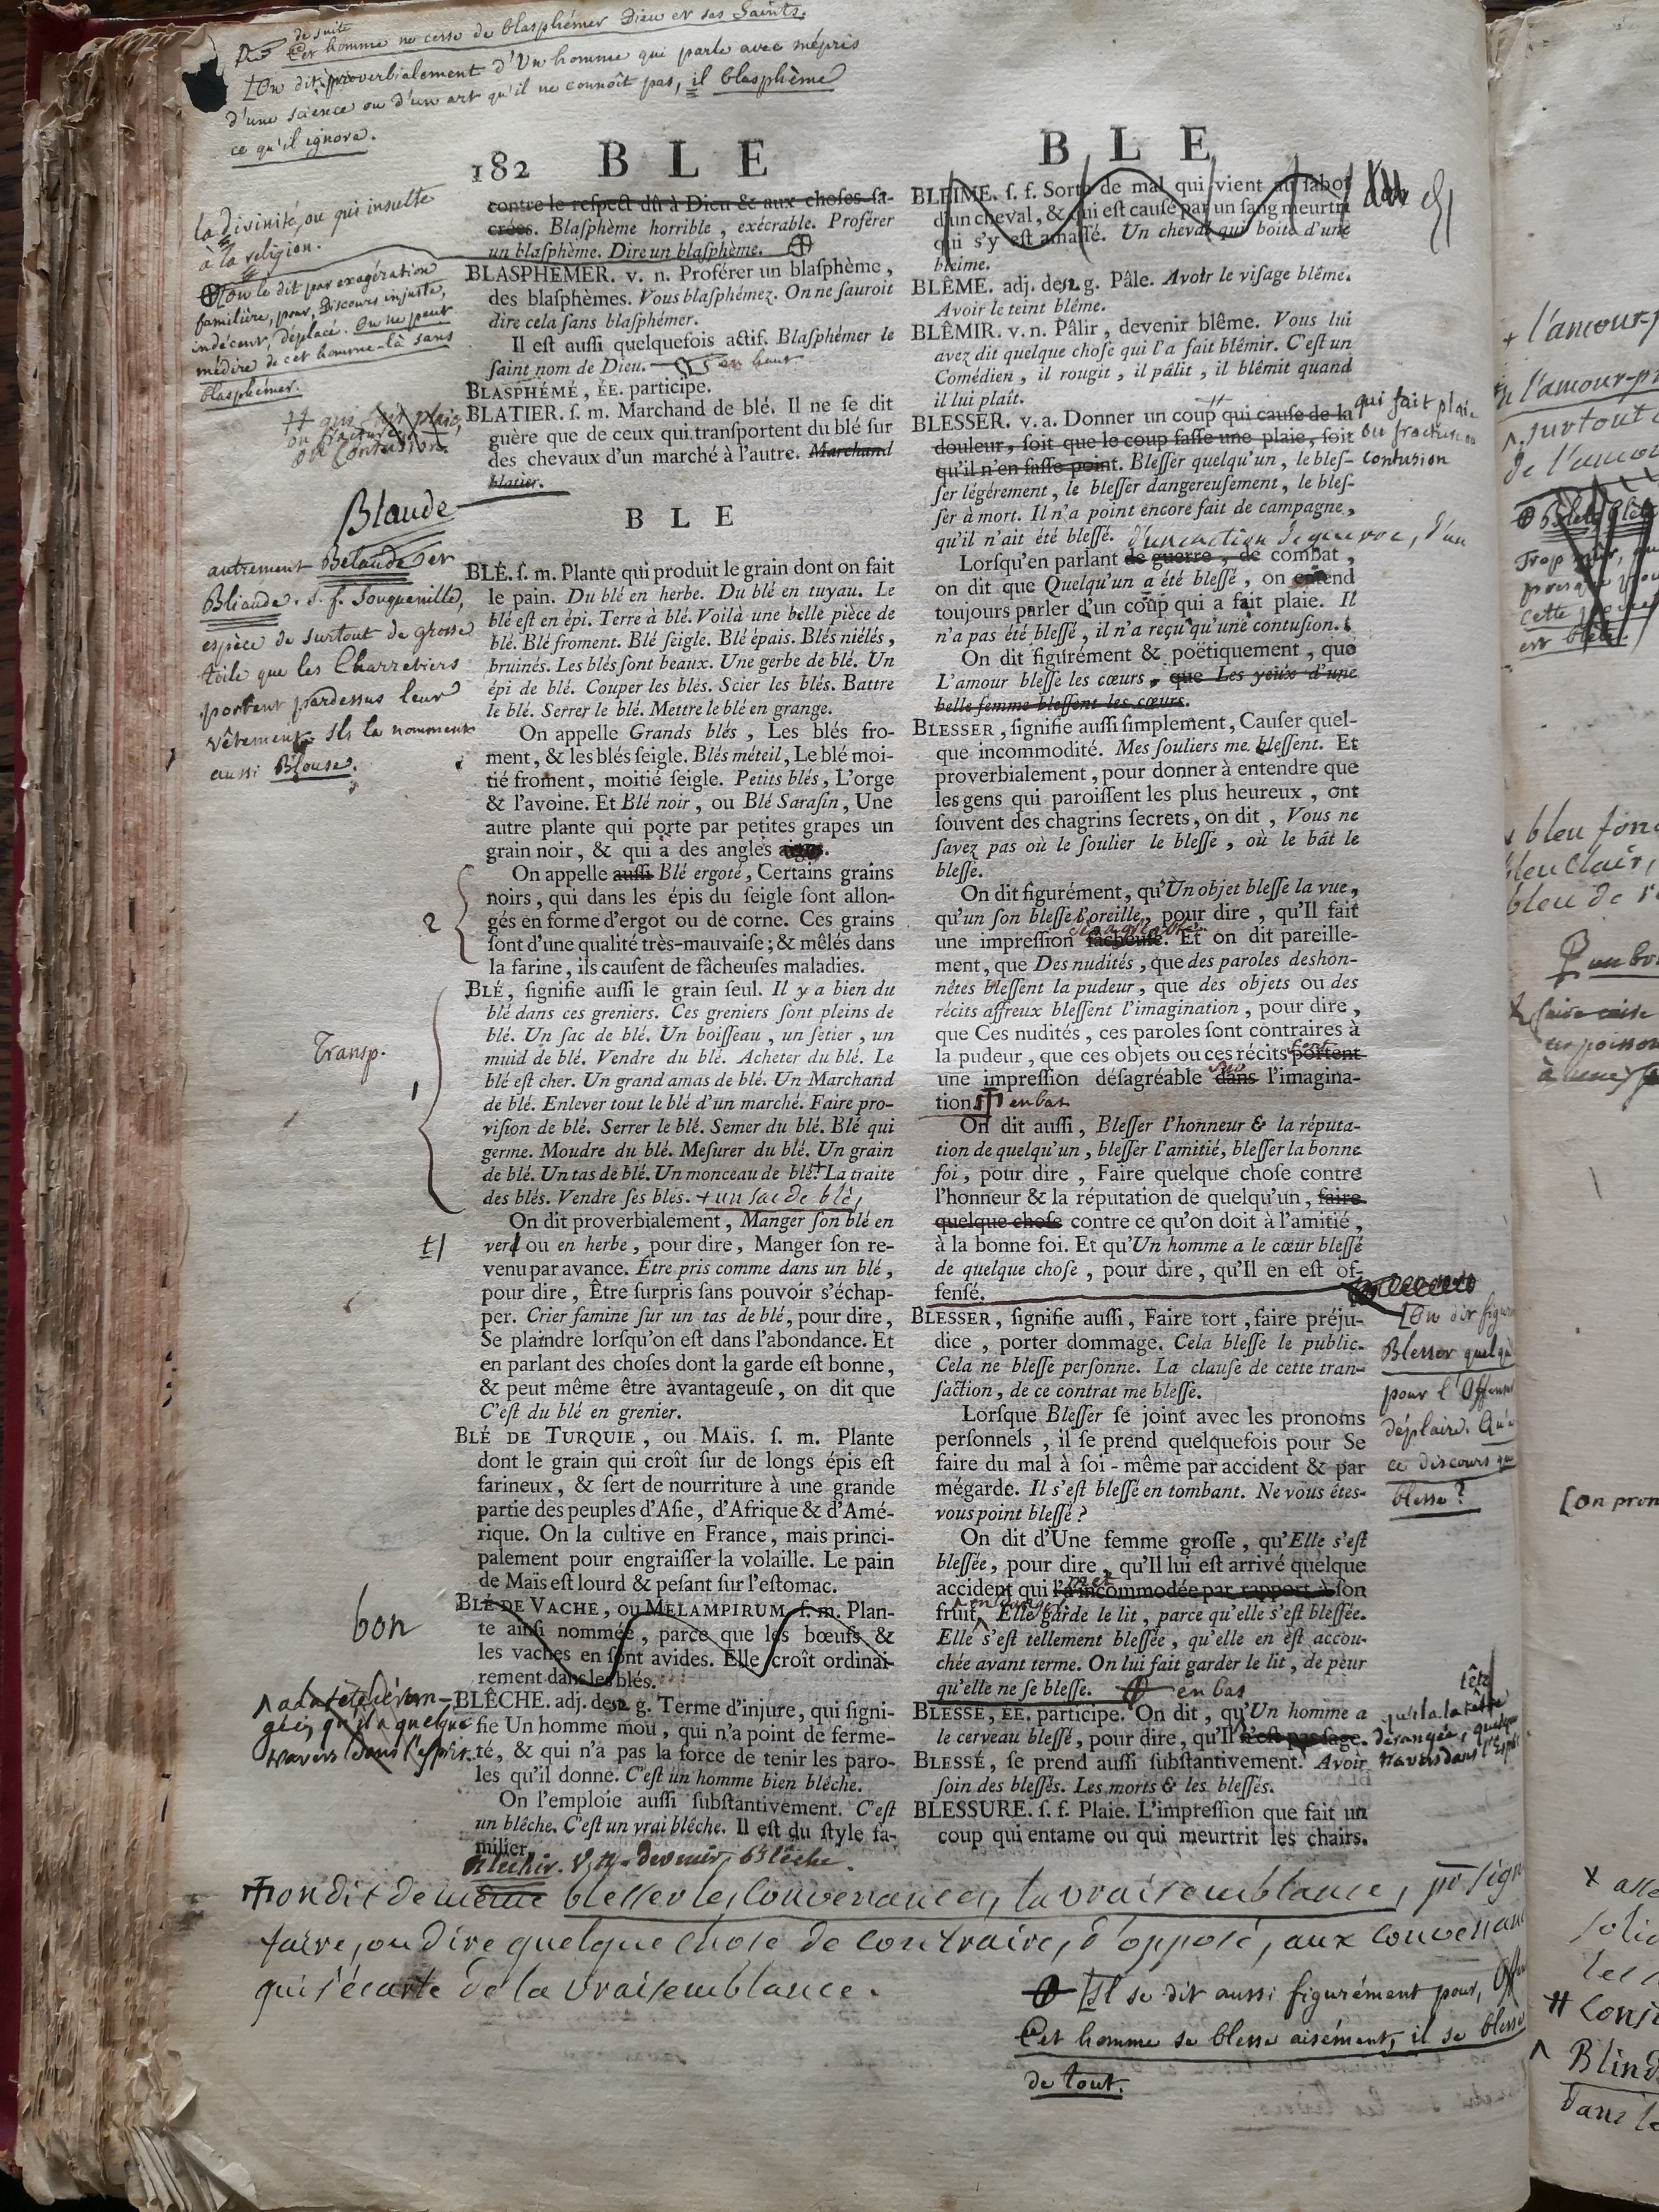 de suite
Cet homme ne cesse de blasphémer Dieu et ses Saints.
[On dit proverbialement d'Un homme qui parle avec mépris
d'une science ou d'un art qu'il ne connoît pas, il blasphème
ce qu'il ignore.
182 B L E
la divinité, ou qui insulte
à la religion.
On le dit par exagération
familière, pour, Discours injuste,
indécent, déplacé. On ne peut
médire de cet homme-là sans
blasphémer.
qui fait plaie,
ou fracture
ou Contusion.
Blaude
autrement Belaude et
Bliaude. s. f. Souquenille,
espèce de surtout de grosse
toile que les Charretiers
portent pardessus leur
vêtement. Ils la nomment
aussi Blouse.
2
Transp.
1
t/
bon
a la tête déran-
gée, qu'il a quelque
travers dans l'esprit.
contre le respect dû à Dieu & aux choſes ſa-
crées. Blaſphème horrible, exécrable. Proférer
un blaſphème. Dire un blaſphème.
BLASPHÉMER. v. n. Proférer un blaſphème,
des blaſphèmes. Vous blaſphémez. On ne ſauroit
dire cela ſans blaſphémer.
Il est auſſi quelquefois actif. Blaſphémer le
ſaint nom de Dieu. en haut
BLASPHÉMÉ, ÉE. participe.
BLATIER. ſ. m. Marchand de blé. Il ne ſe dit
guère que de ceux qui tranſportent du blé ſur
des chevaux d'un marché à l'autre. Marchand
blatier.
B L E
BLÉ. ſ. m. Plante qui produit le grain dont on fait
le pain. Du blé en herbe. Du blé en tuyau. Le
blé eſt en épi. Terre à blé. Voilà une belle pièce de
blé. Blé froment. Blé ſeigle. Blé épais. Blés niélés,
bruinés. Les blés ſont beaux. Une gerbe de blé. Un
épi de blé. Couper les blés. Scier les blés. Battre
le blé. Serrer le blé. Mettre le blé en grange.
On appelle Grands blés, Les blés fro-
ment, & les blés ſeigle. Blés méteil, Le blé moi-
tié froment, moitié ſeigle. Petits blés, L'orge
& l'avoine. Et Blé noir, ou Blé Saraſin, Une
autre plante qui porte par petites grapes un
grain noir, & qui a des angles aigus.
On appelle auſſi Blé ergoté, Certains grains
noirs, qui dans les épis du ſeigle ſont allon-
gés en forme d'ergot ou de corne. Ces grains
ſont d'une qualité très-mauvaiſe; & mêlés dans
la farine, ils cauſent de fâcheuſes maladies.
BLÉ, ſignifie auſſi le grain ſeul. Il y a bien du
blé dans ces greniers. Ces greniers ſont pleins de
blé. Un ſac de blé. Un boiſſeau, un ſetier, un
muid de blé. Vendre du blé. Acheter du blé. Le
blé eſt cher. Un grand amas de blé. Un Marchand
de blé. Enlever tout le blé d'un marché. Faire pro-
viſion de blé. Serrer le blé. Semer du blé. Blé qui
germe. Moudre du blé. Meſurer du blé. Un grain
de blé. Un tas de blé. Un monceau de blé.+ La traite
des blés. Vendre ſes blés. + un sac de blé,
On dit proverbialement, Manger ſon blé en
verd ou en herbe, pour dire, Manger ſon re-
venu par avance. Être pris comme dans un blé,
pour dire, Être ſurpris ſans pouvoir s'échap-
per. Crier famine ſur un tas de blé, pour dire,
Se plaindre lorſqu'on eſt dans l'abondance. Et
en parlant des choſes dont la garde eſt bonne,
& peut même être avantageuſe, on dit que
C'eſt du blé en grenier.
BLÉ DE TURQUIE, ou MAÏS. ſ. m. Plante
dont le grain qui croît ſur de longs épis eſt
farineux, & ſert de nourriture à une grande
partie des peuples d'Aſie, d'Afrique & d'Amé-
rique. On la cultive en France, mais princi-
palement pour engraiſſer la volaille. Le pain
de Maïs eſt lourd & peſant ſur l'eſtomac.
BLÉ DE VACHE, ou MELAMPIRUM. ſ. m. Plan-
te ainſi nommée, parce que les bœufs &
les vaches en ſont avides. Elle croît ordinai-
rement dans les blés.
BLÊCHE. adj. de 2 g. Terme d'injure, qui ſigni-
fie Un homme mou, qui n'a point de ferme-
té, & qui n'a pas la force de tenir les paro-
les qu'il donne. C'eſt un homme bien blêche.
On l'emploie auſſi ſubſtantivement. C'eſt
un blêche. C'eſt un vrai blêche. Il eſt du ſtyle fa-
milier.
Blechir. V. n. devenir blêche.
B L E
BLEIME. ſ. f. Sorte de mal qui vient au ſabot
d'un cheval, & qui eſt cauſé par un ſang meurtri
qui s'y eſt amaſſé. Un cheval qui boite d'une
bleime.
BLÊME. adj. de 2 g. Pâle. Avoir le viſage blême.
Avoir le teint blême.
BLÊMIR. v. n. Pâlir, devenir blême. Vous lui
avez dit quelque choſe qui l'a fait blêmir. C'eſt un
Comédien, il rougit, il pâlit, il blêmit quand
il lui plaît.
BLESSER. v. a. Donner un coup qui cauſe de la
douleur, ſoit que le coup faſſe une plaie, ſoit
qu'il n'en faſſe point. Bleſſer quelqu'un, le bleſ-
ſer légérement, le bleſſer dangereuſement, le bleſ-
ſer à mort. Il n'a point encore fait de campagne,
qu'il n'ait été bleſſé. d'une action de guerre, d'un
Lorſqu'en parlant de guerre, de combat,
on dit que Quelqu'un a été bleſſé, on entend
toujours parler d'un coup qui a fait plaie. Il
n'a pas été bleſſé, il n'a reçu qu'une contuſion.
On dit figurément & poëtiquement, que
L'amour bleſſe les cœurs, que Les yeux d'une
belle femme bleſſent les cœurs.
BLESSER, ſignifie auſſi ſimplement, Cauſer quel-
que incommodité. Mes ſouliers me bleſſent. Et
proverbialement, pour donner à entendre que
les gens qui paroiſſent les plus heureux, ont
ſouvent des chagrins ſecrets, on dit, Vous ne
ſavez pas où le ſoulier le bleſſe, où le bât le
bleſſe.
On dit figurément, qu'Un objet bleſſe la vue,
qu'un ſon bleſſe l'oreille, pour dire, qu'Il fait
désagréable
une impreſſion fâcheuſe. Et on dit pareille-
ment, que Des nudités, que des paroles deshon-
nêtes bleſſent la pudeur, que des objets ou des
récits affreux bleſſent l'imagination, pour dire,
que Ces nudités, ces paroles ſont contraires à
la pudeur, que ces objets ou ces récits portent
font
une impreſſion déſagréable dans l'imagina-
sur
tion. en bas
On dit auſſi, Bleſſer l'honneur & la réputa-
tion de quelqu'un, bleſſer l'amitié, bleſſer la bonne
foi, pour dire, Faire quelque choſe contre
l'honneur & la réputation de quelqu'un, faire
quelque choſe contre ce qu'on doit à l'amitié,
à la bonne foi. Et qu'Un homme a le cœur bleſſé
de quelque choſe, pour dire, qu'Il en eſt of-
fenſé.
BLESSER, ſignifie auſſi, Faire tort, faire préju-
dice, porter dommage. Cela bleſſe le public.
Cela ne bleſſe perſonne. La clauſe de cette tran-
ſaction, de ce contrat me bleſſe.
Lorſque Bleſſer ſe joint avec les pronoms
perſonnels, il ſe prend quelquefois pour Se
faire du mal à ſoi-même par accident & par
mégarde. Il s'eſt bleſſé en tombant. Ne vous êtes-
vous point bleſſé?
On dit d'Une femme groſſe, qu'Elle s'eſt
bleſſée, pour dire, qu'Il lui eſt arrivé quelque
met
accident qui l'a incommodée par rapport à ſon
en danger
fruit. Elle garde le lit, parce qu'elle s'eſt bleſſée.
Elle s'eſt tellement bleſſée, qu'elle en eſt accou-
chée avant terme. On lui fait garder le lit, de peur
qu'elle ne ſe bleſſe. en bas
BLESSÉ, ÉE. participe. On dit, qu'Un homme a
le cerveau bleſſé, pour dire, qu'Il n'eſt pas ſage.
BLESSÉ, ſe prend auſſi ſubſtantivement. Avoir
ſoin des bleſſés. Les morts & les bleſſés.
BLESSURE. ſ. f. Plaie. L'impreſſion que fait un
coup qui entame ou qui meurtrit les chairs.
qui fait plaie
ou fracture ou
contusion
[On dit figur
Blesser quelqu
pour l'Offenser
déplaire. Qu'a
ce discours qu
blesse?
tête
qu'il a la tête
dérangée, quelque
travers dans l'esprit
on dit de même blesser les Convenances, la vraisemblance, pr sign
faire, ou dire quelque chose de contraire, d'opposé, aux convenan
qui s'écarte de la vraisemblance.
[Il se dit aussi figurément pour,
Cet homme se blesse aisément, il se blesse
de tout.
+ l'amour-p
l'amour-pr
surtout
de l'amou
Trop mûr,
presque
cette
est blète.
bleu fonc
bleu clair,
bleu de r
un bo
faire cuire
un poisson
[On pron
Const
Blind
Dans le